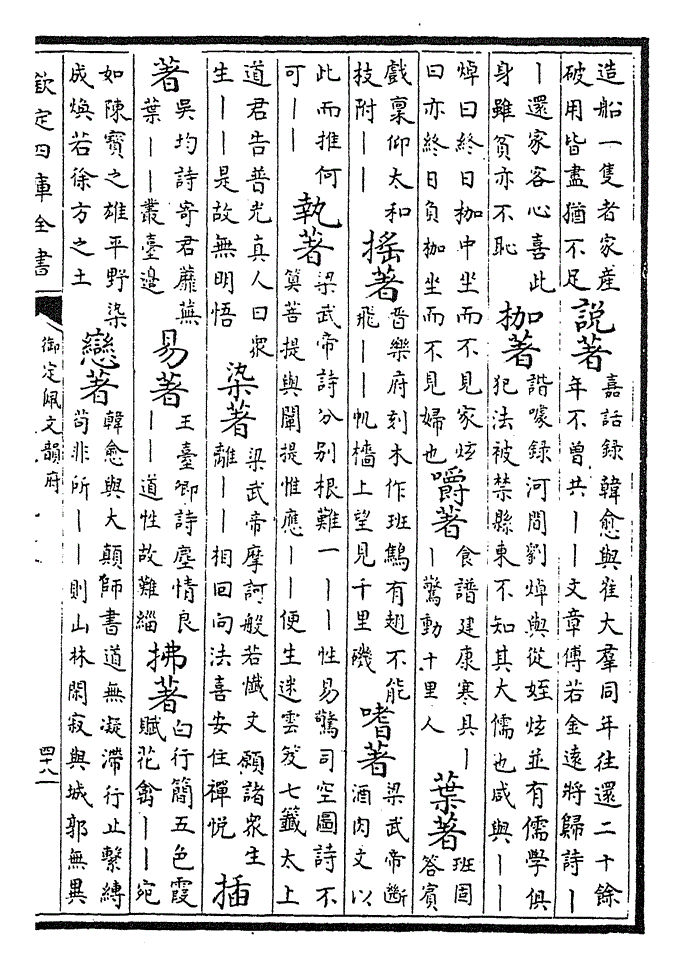 造船一隻者家產
破用皆盡猶不足
說著
嘉話錄韓愈與崔大羣同年往還二十餘
年不曾共丨丨文章傳若金遠將歸詩丨
丨還家客心喜此
身雖貧亦不恥
枷著
諧噱録河間劉焯與從姪炫並有儒學俱
犯法被禁縣東不知其大儒也咸與丨丨
焯曰終日枷中坐而不見家炫
曰亦終日負枷坐而不見婦也
嚼著
食譜建康寒具丨
丨驚動十里人
葉著
班固
答賓
戲稟仰太和
技附丨丨
搖著
晉樂府刻木作班鷦有翅不能
飛丨丨帆檣上望見千里磯
嗜著
梁武帝斷
酒肉文以
此而推何
可丨丨
執著
梁武帝詩分別根難一丨丨性易驚司空圖詩不
筭菩提與闡提惟應丨丨便生迷雲笈七籤太上
道君告普光真人曰衆
生丨丨是故無明悟
染著
梁武帝摩訶般若懺文願諸衆生
離丨丨相回向法喜安住禪悅
插
著
吳均詩寄君蘼蕪
葉丨丨叢臺邊
易著
王臺卿詩塵情良
丨丨道性故難緇
拂著
白行簡五色霞
賦花禽丨丨宛
如陳寶之雄平野染
成煥若徐方之土
戀著
韓愈與大顛師書道無凝滯行止繫縛
苟非所丨丨則山林閑寂與城郭無異
欽定四庫全書
御定佩文韻府